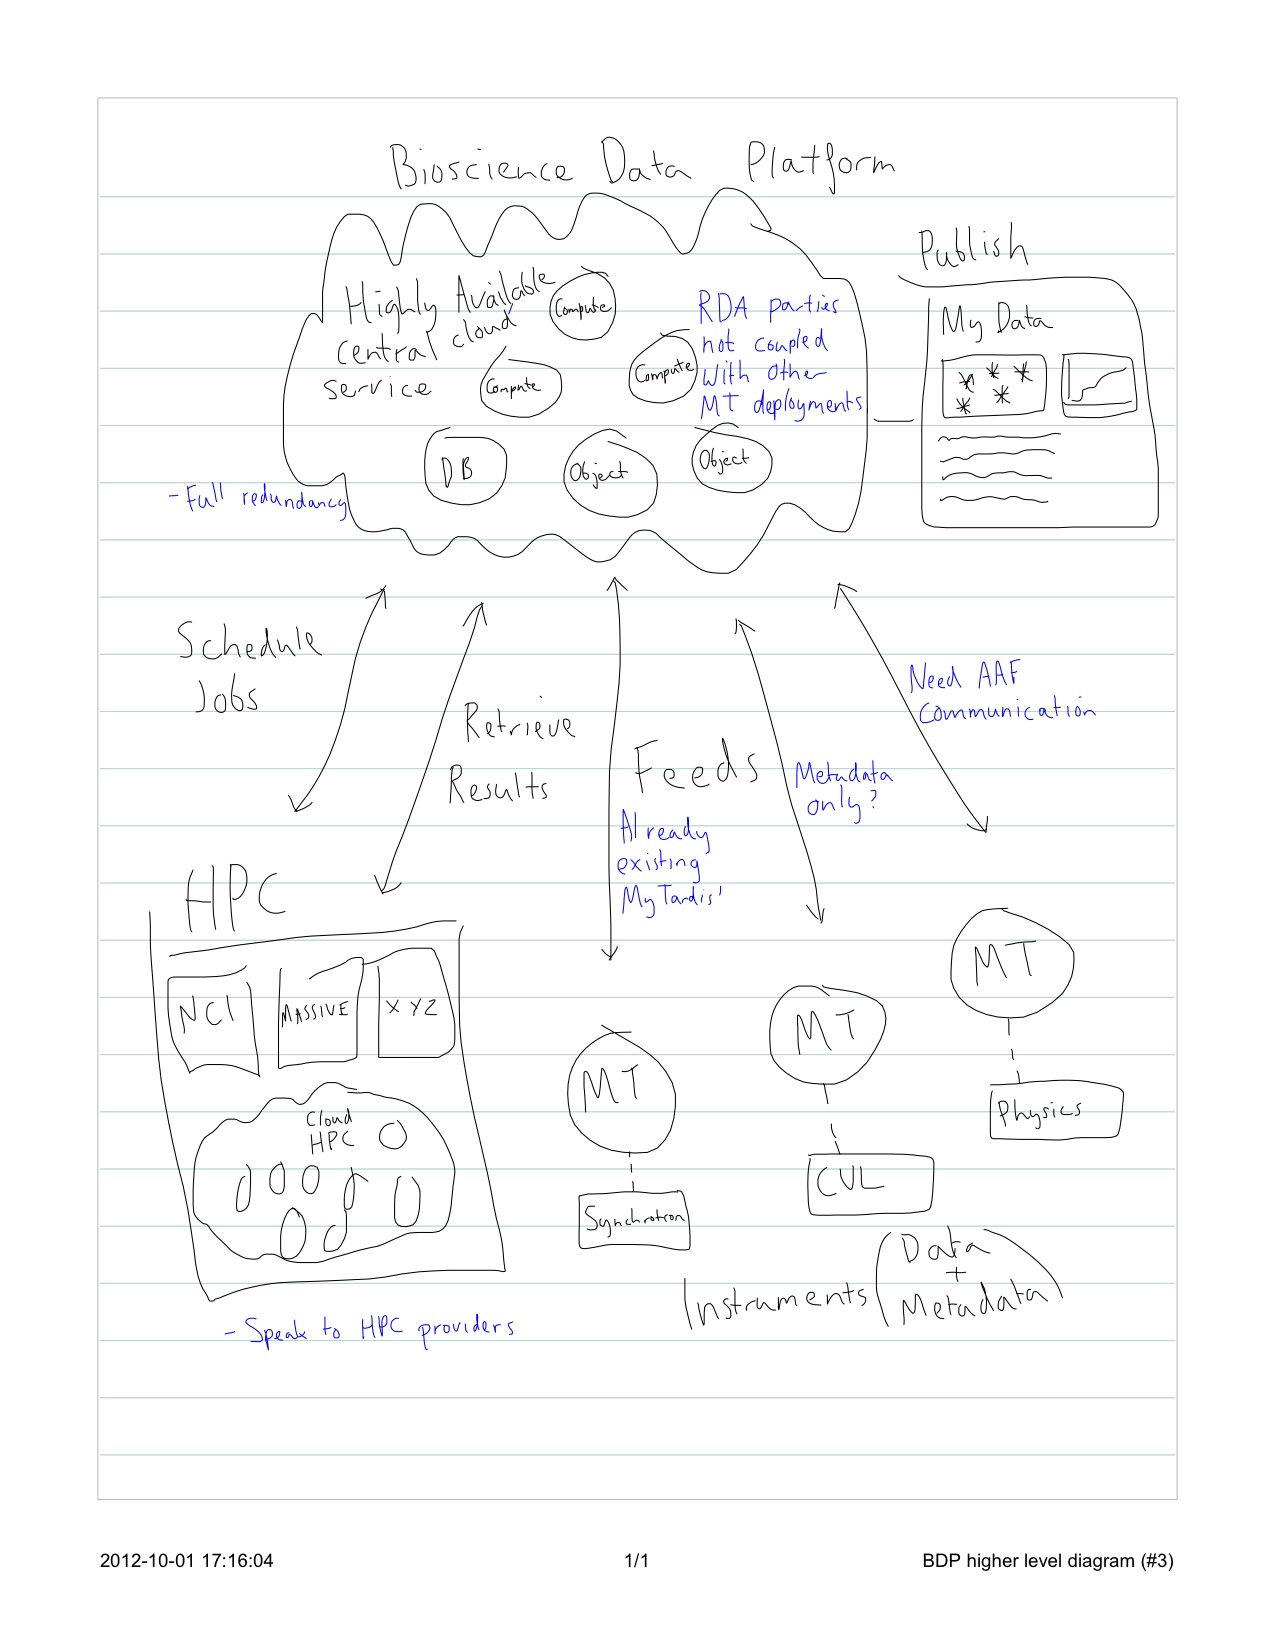 Bioscience Data Platform
Highly Available
central cloud
service
Compute
Compute
Compute
RDA parties
not coupled
with other
MT deployments
DB
Object
Object
- Full redundancy
Publish
My Data
Schedule
Jobs
Retrieve
Results
Feeds
Already
existing
MyTardis'
Metadata
only?
Need AAF
Communication
HPC
NCI
MASSIVE
XYZ
Cloud
HPC
MT
Synchrotron
MT
CVL
MT
Physics
Instruments (Data
+
Metadata)
- Speak to HPC providers
2012-10-01 17:16:04
1/1
BDP higher level diagram (#3)